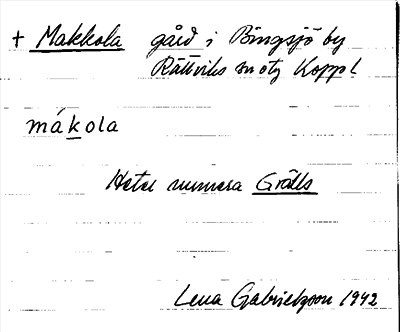 + Makkola gård i Bingsjö by
Rättviks sn o tg Koppl
mákola
Heter numera Grålls
Lena Gabrielsson 1942